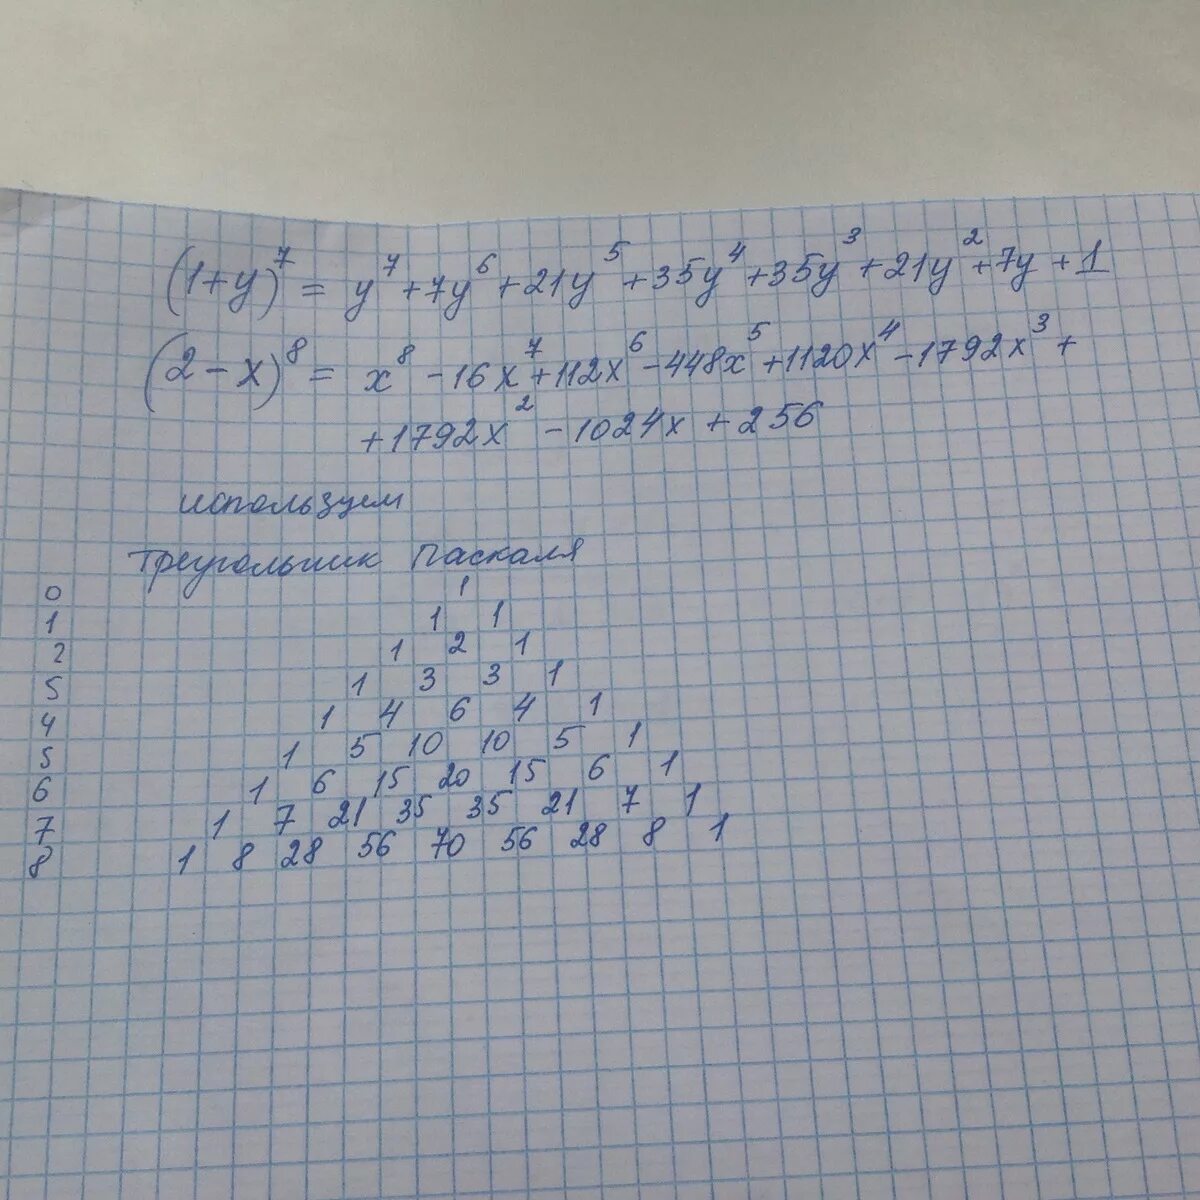 (1+y)⁷ = y⁷+7y⁶+21y⁵+35y⁴+35y³+21y²+7y+1
(2-x)⁸ = x⁸-16x⁷+112x⁶-448x⁵+1120x⁴-1792x³+
+1792x²-1024x+256
используем
треугольник паскаля
0 1
1 1 1
2 1 2 1
5 1 3 3 1
4 1 4 6 4 1
5 1 5 10 10 5 1
6 1 6 15 20 15 6 1
7 1 7 21 35 35 21 7 1
8 1 8 28 56 70 56 28 8 1